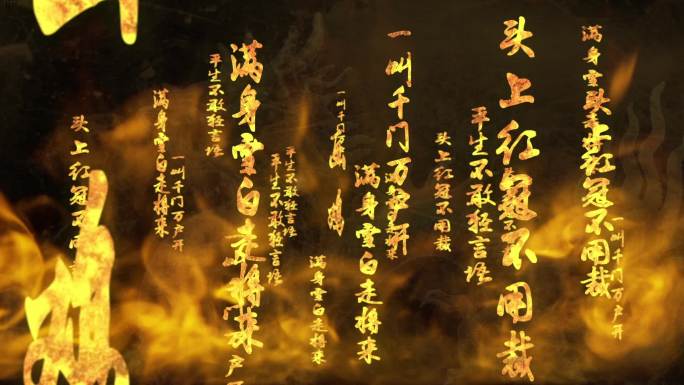 一叫千门万户开
头上红冠不用裁
满身雪
头上红冠不用裁
平生不敢轻言语
头上红冠不用裁
一叫千门万户开
满身雪白走将来
一叫千门
满身雪白走将来
平生不敢轻言语
平生不敢轻言语
满身雪白走将来
户
平生不敢轻言语
一叫千门万户开
满身雪白走将来
头上红冠不用